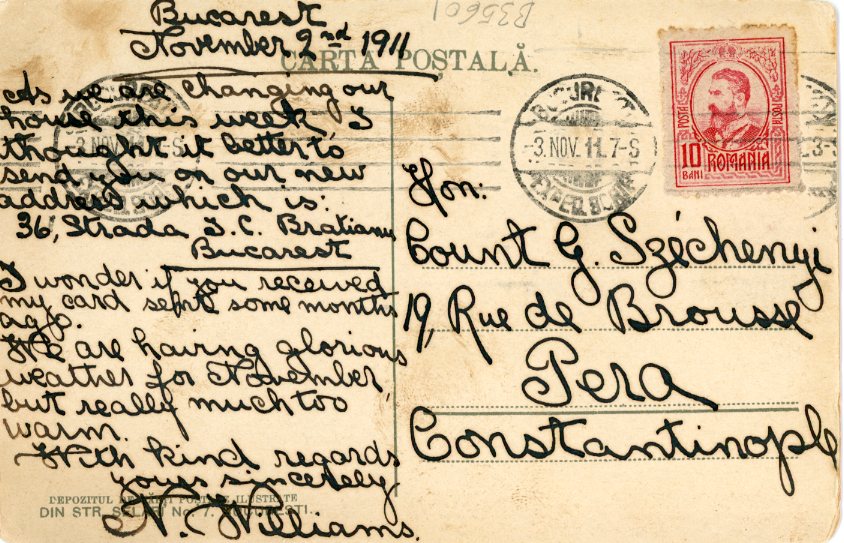 Bucarest
November 2nd 1911
B35601
CARTA POSTALĂ.
As we are changing our
house this week, I
thought it better to
send you on our new
address which is:
36, Strada I. C. Bratianu
Bucarest
I wonder if you received
my card sent some months
ago.
We are having glorious
weather for November,
but really much too
warm.
With kind regards
yours sincerely
N. Williams.
DEPOZITUL DE CĂRȚI POSTALE ILUSTRATE
DIN STR. SELARI No. 7. BUCURESTI.
BUCUREȘTI
3. NOV. 11. 7-S
3. NOV. 11. 7-S
POSTA
POSTA
10 BANI
ROMANIA
Hon:
Count G. Széchenyi
19, Rue de Brousse
Pera
Constantinople